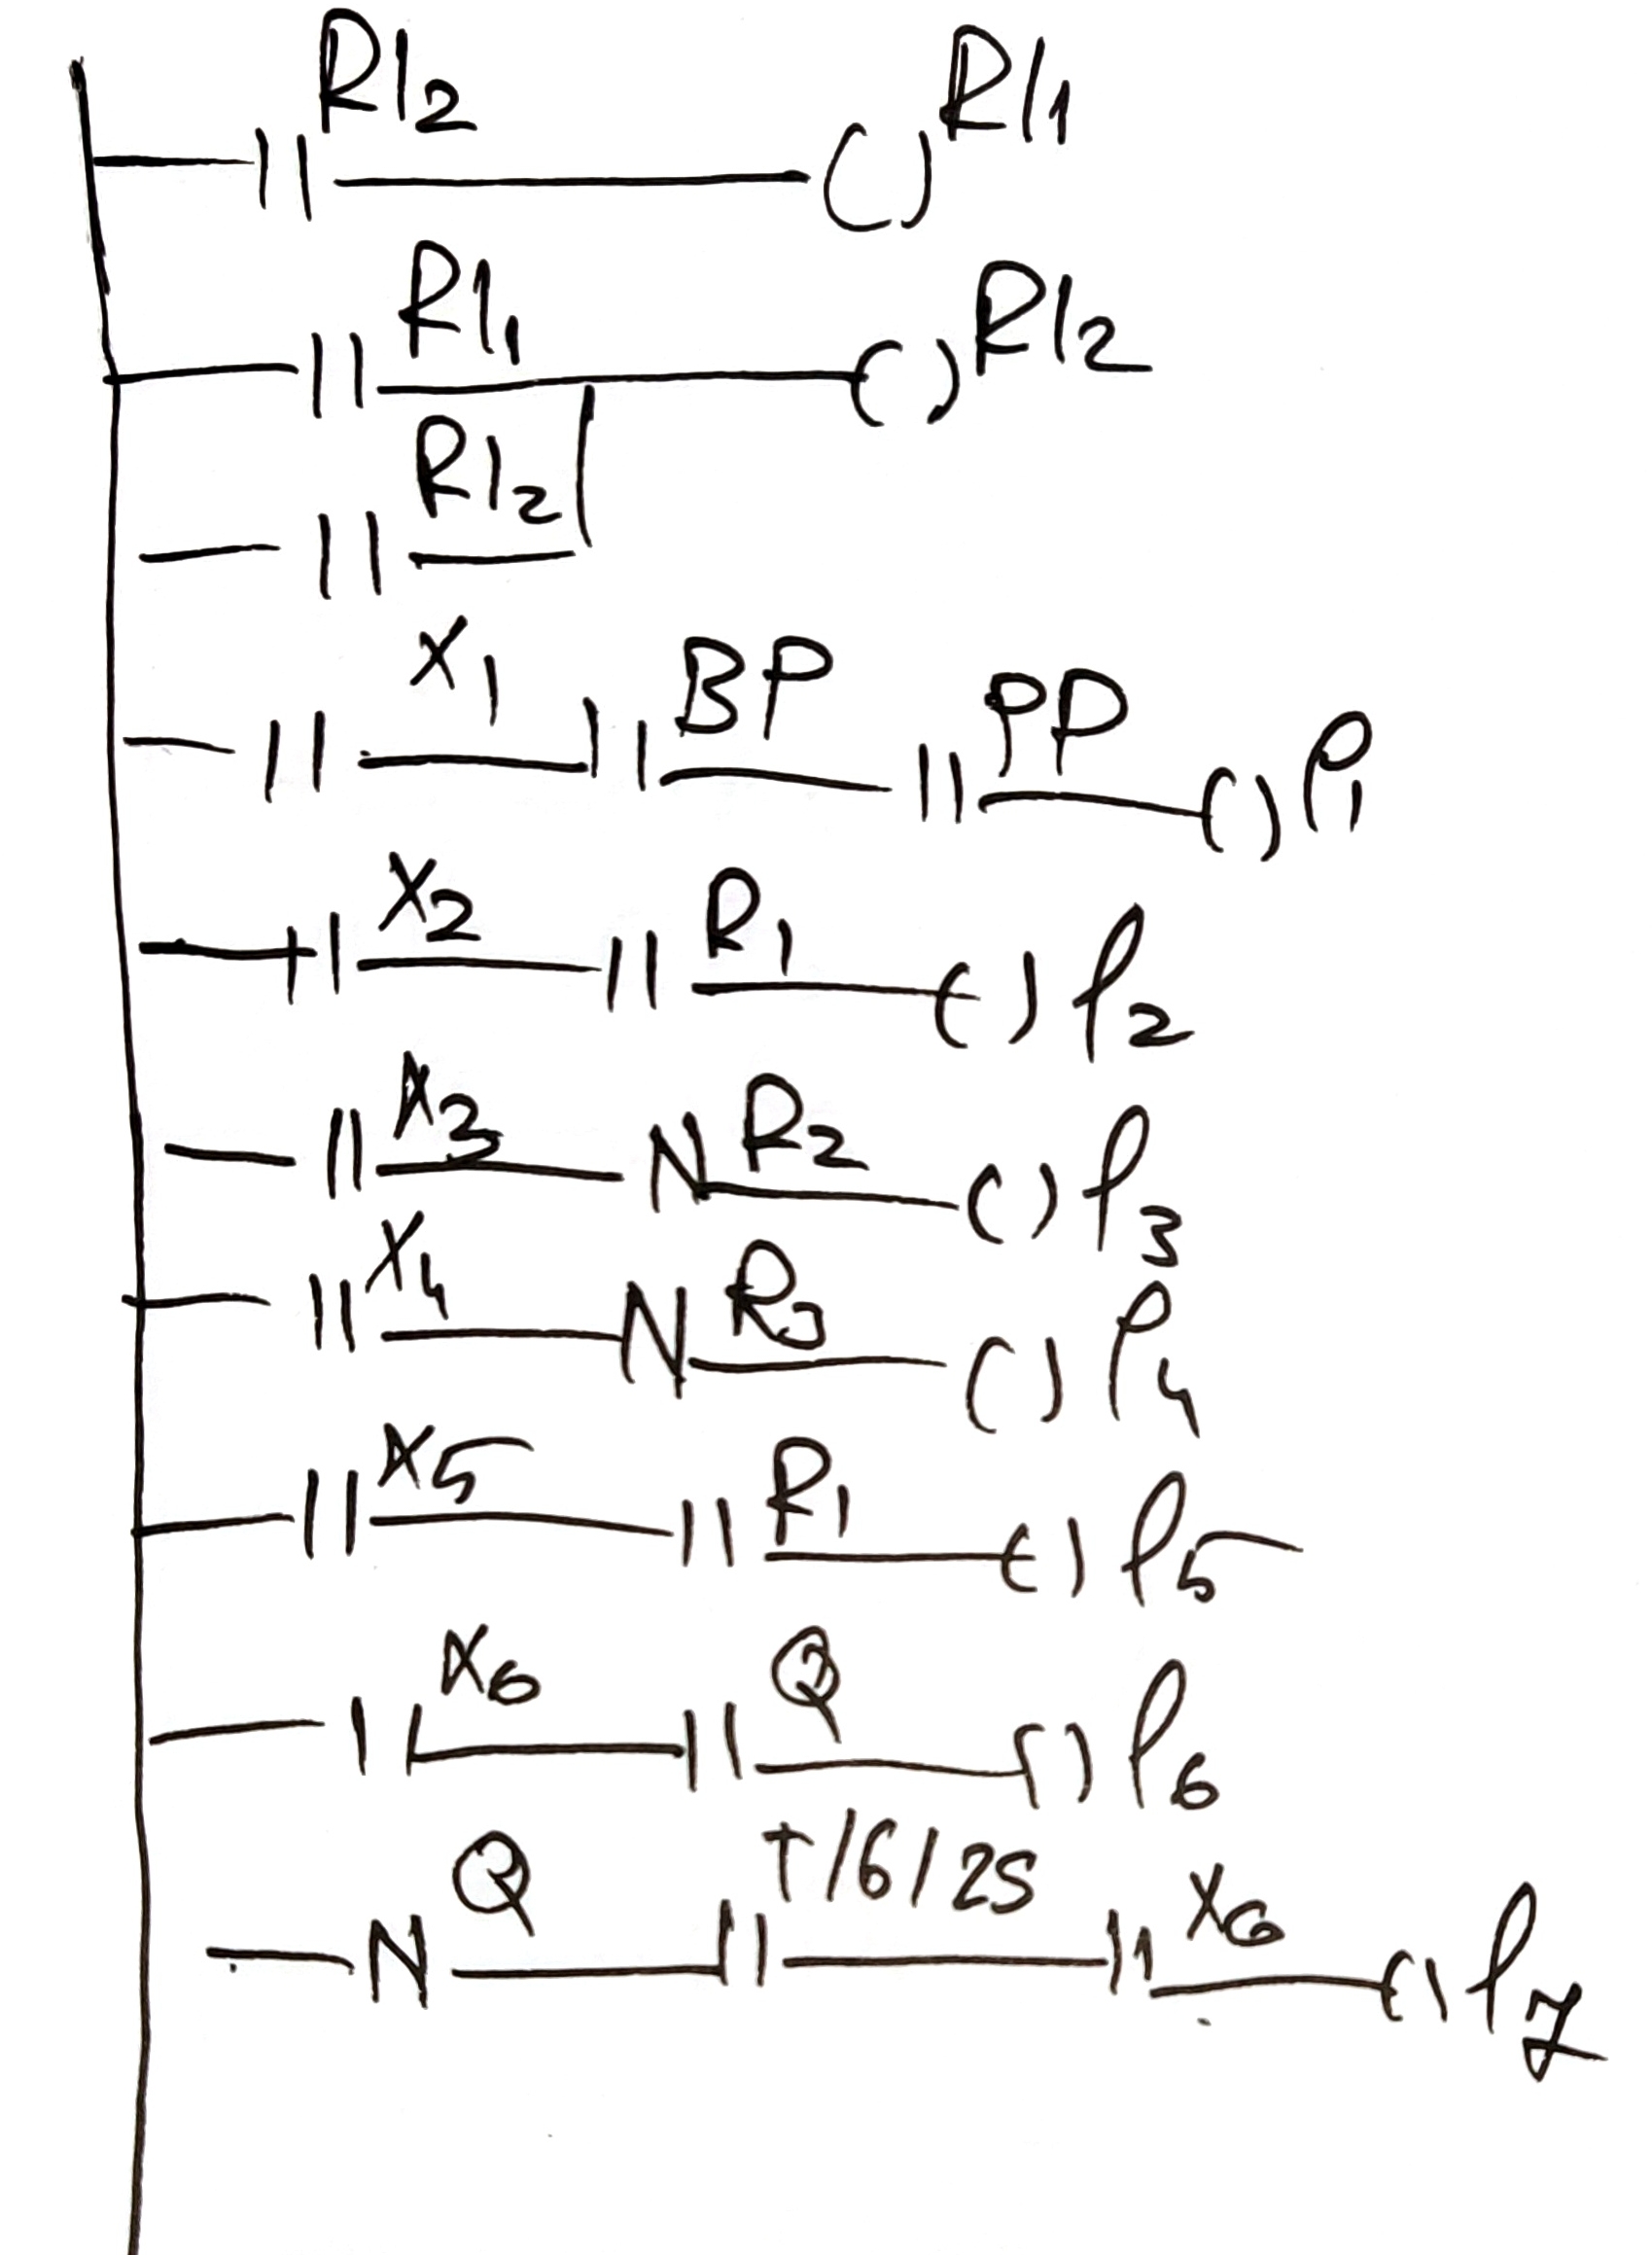 Rl2 Rl1
Rl1 Rl2
Rl2
X1 BP PP P1
X2 R1 P2
X3 N R2 P3
X4 N R3 P4
X5 R1 P5
X6 Q P6
N Q T/6/2S X6 P7